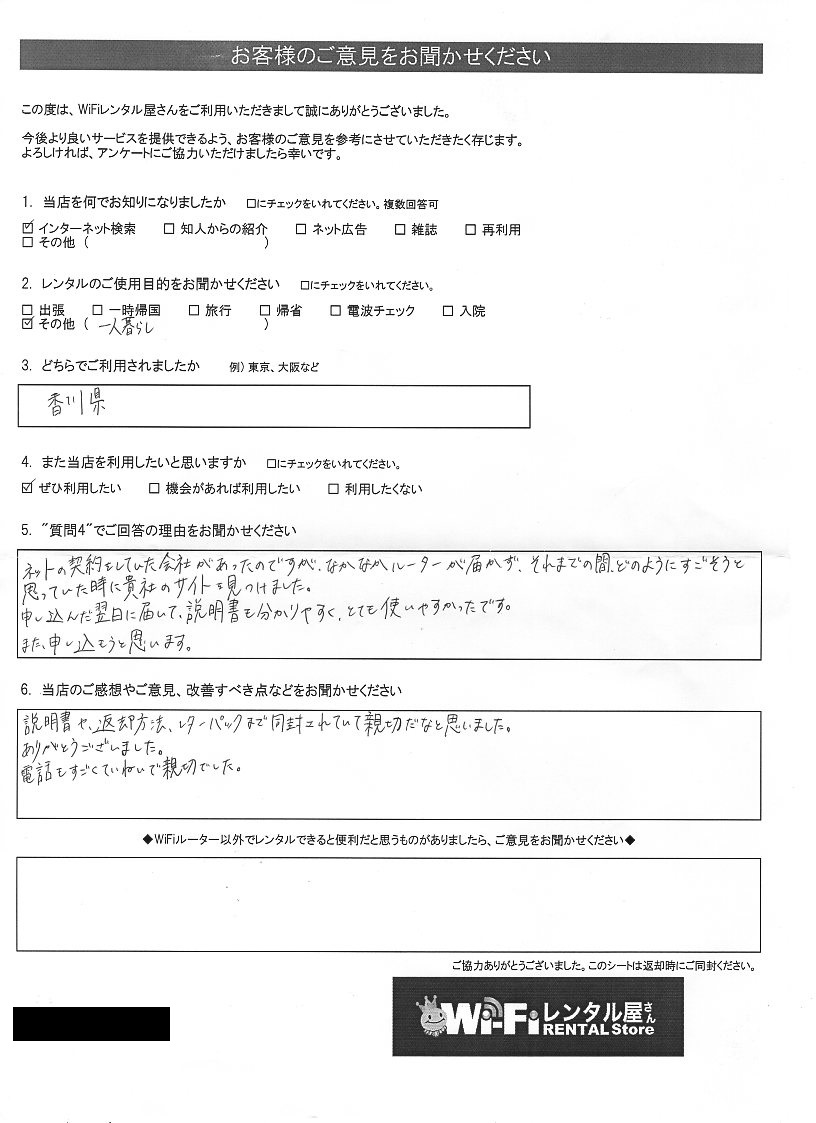 お客様のご意見をお聞かせください
この度は、WiFiレンタル屋さんをご利用いただきまして誠にありがとうございました。
今後より良いサービスを提供できるよう、お客様のご意見を参考にさせていただきたく存じます。
よろしければ、アンケートにご協力いただけましたら幸いです。
1. 当店を何でお知りになりましたか □にチェックをいれてください。複数回答可
☑ インターネット検索 □ 知人からの紹介 □ ネット広告 □ 雑誌 □ 再利用
□ その他 ( )
2. レンタルのご使用目的をお聞かせください □にチェックをいれてください。
□ 出張 □ 一時帰国 □ 旅行 □ 帰省 □ 電波チェック □ 入院
☑ その他 ( 一人暮らし )
3. どちらでご利用されましたか 例) 東京、大阪など
香川県
4. また当店を利用したいと思いますか □にチェックをいれてください。
☑ ぜひ利用したい □ 機会があれば利用したい □ 利用したくない
5. "質問4"でご回答の理由をお聞かせください
ネットの契約をしていた会社があったのですが、なかなかルーターが届かず、それまでの間、どのようにすごそうと
思っていた時に貴社のサイトを見つけました。
申し込んだ翌日に届いて、説明書も分かりやすく、とても使いやすかったです。
また、申し込もうと思います。
6. 当店のご感想やご意見、改善すべき点などをお聞かせください
説明書や、返却方法、レターパックまで同封されていて親切だなと思いました。
ありがとうございました。
電話もすごくていねいで親切でした。
◆WiFiルーター以外でレンタルできると便利だと思うものがありましたら、ご意見をお聞かせください◆
ご協力ありがとうございました。このシートは返却時にご同封ください。
Wi-Fiレンタル屋さん
RENTAL Store